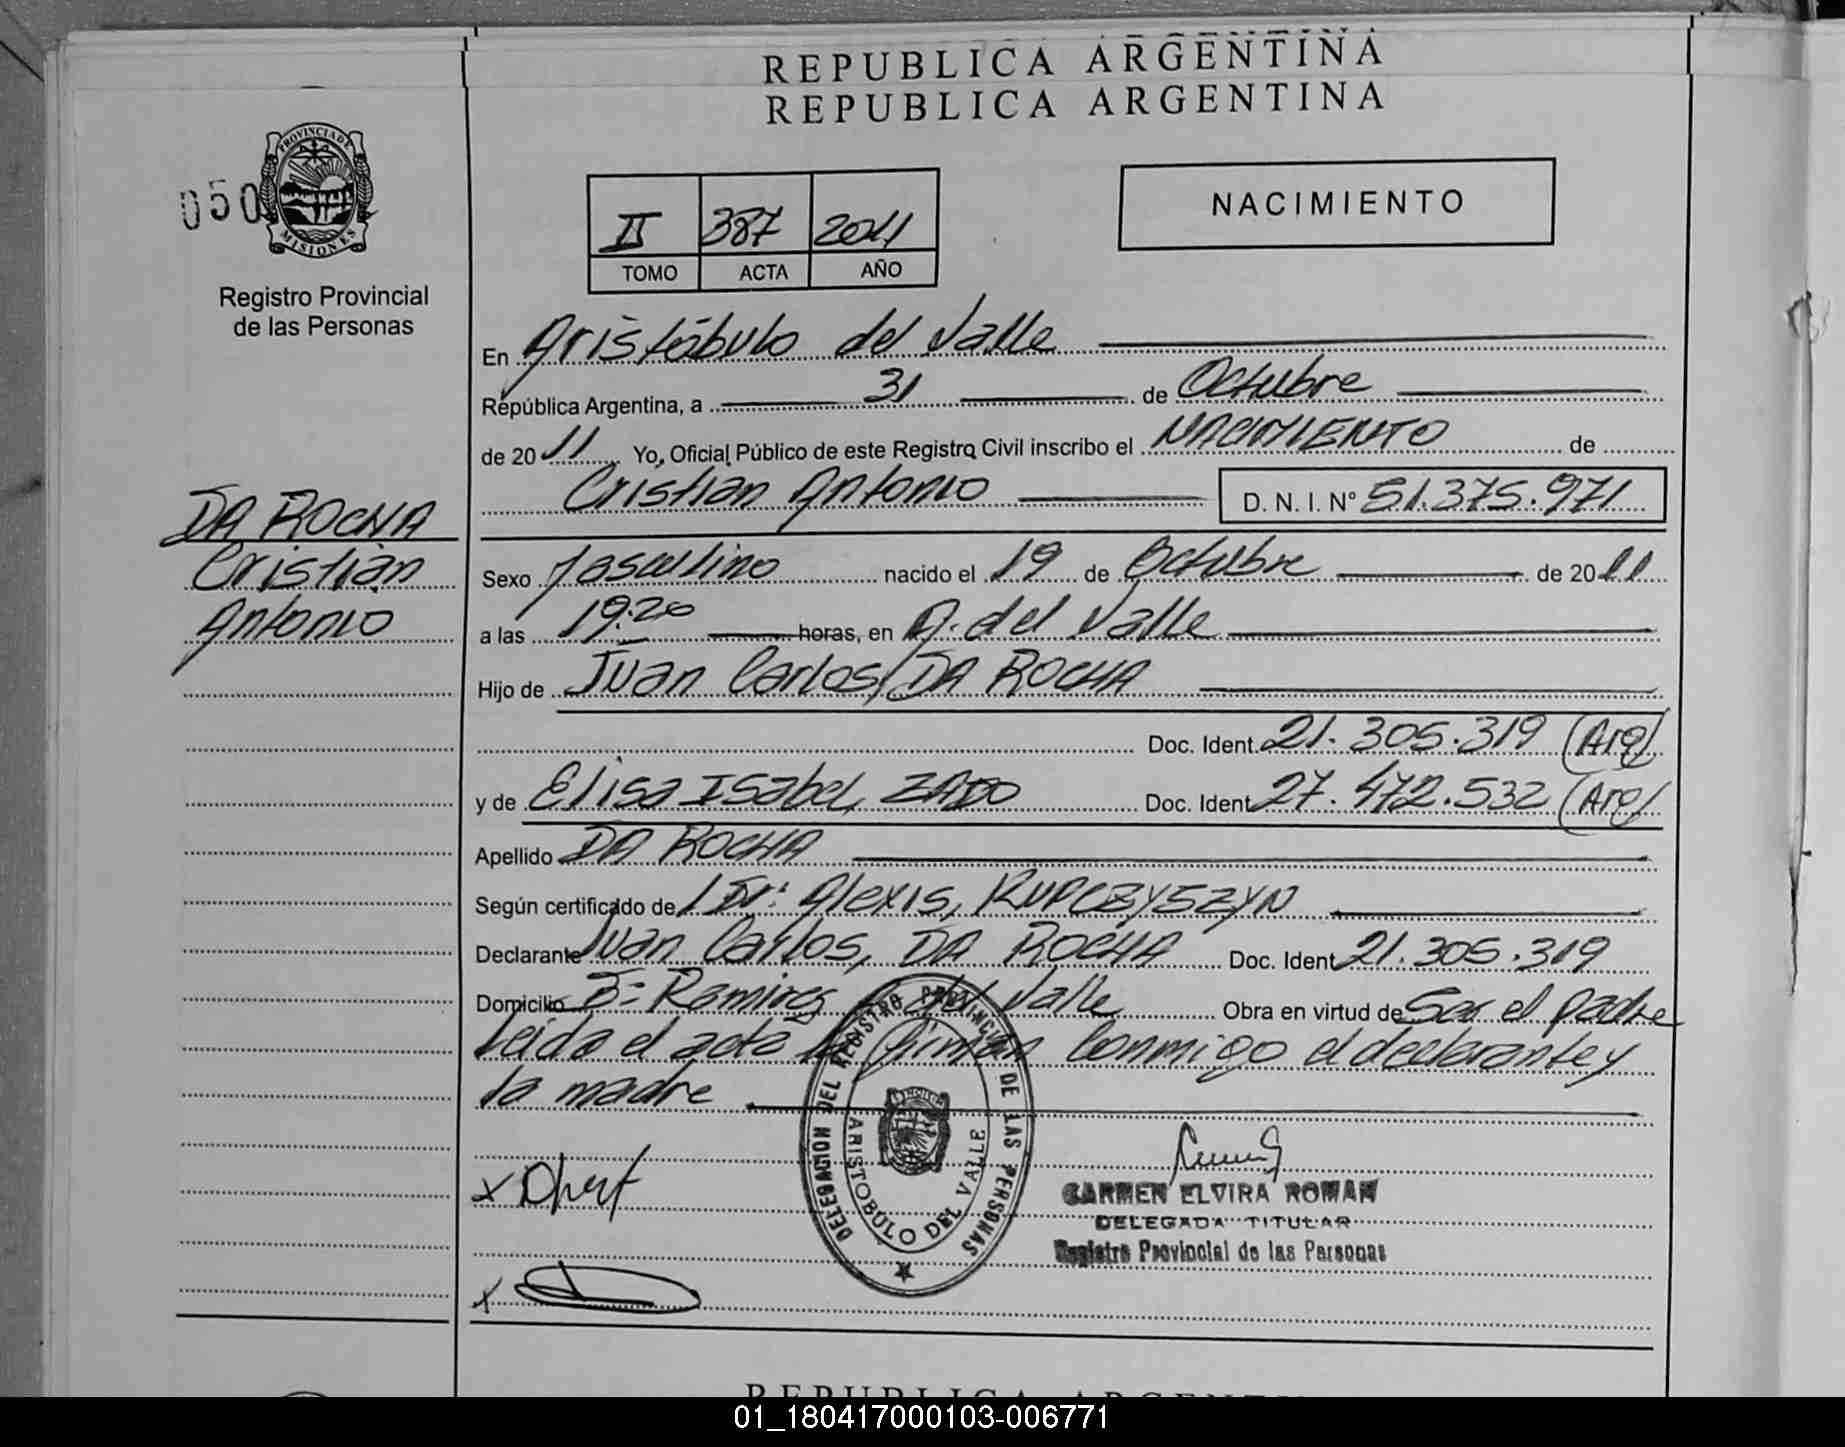 REPUBLICA ARGENTINA
REPUBLICA ARGENTINA
050
PROVINCIA DE
MISIONES
Registro Provincial
de las Personas
II 387 2011
TOMO ACTA AÑO
NACIMIENTO
En Aristóbulo del Valle
República Argentina, a 31 de Octubre
de 2011 Yo, Oficial Público de este Registro Civil inscribo el NACIMIENTO de
Cristian Antonio D. N. I. Nº 51.375.971
DA ROCHA
Cristian
Antonio
Sexo Masculino nacido el 19 de Octubre de 2011
a las 19.20 horas, en A. del Valle
Hijo de Juan Carlos, DA ROCHA
Doc. Ident. 21.305.319 (Arg)
y de Elisa Isabel, ZADO Doc. Ident. 27.472.532 (Arg)
Apellido DA ROCHA
Según certificado de Dr: Alexis, KUPCZYSZYN
Declarante Juan Carlos, DA ROCHA Doc. Ident. 21.305.319
Domicilio Bº Ramirez del Valle Obra en virtud de Ser el padre
Leida el acta la firman conmigo el declarante y
la madre
DELEGACION DEL REGISTRO PROVINCIAL DE LAS PERSONAS
ARISTOBULO DEL VALLE
CARMEN ELVIRA ROMAN
DELEGADA TITULAR
Registro Provincial de las Personas
01_180417000103-006771